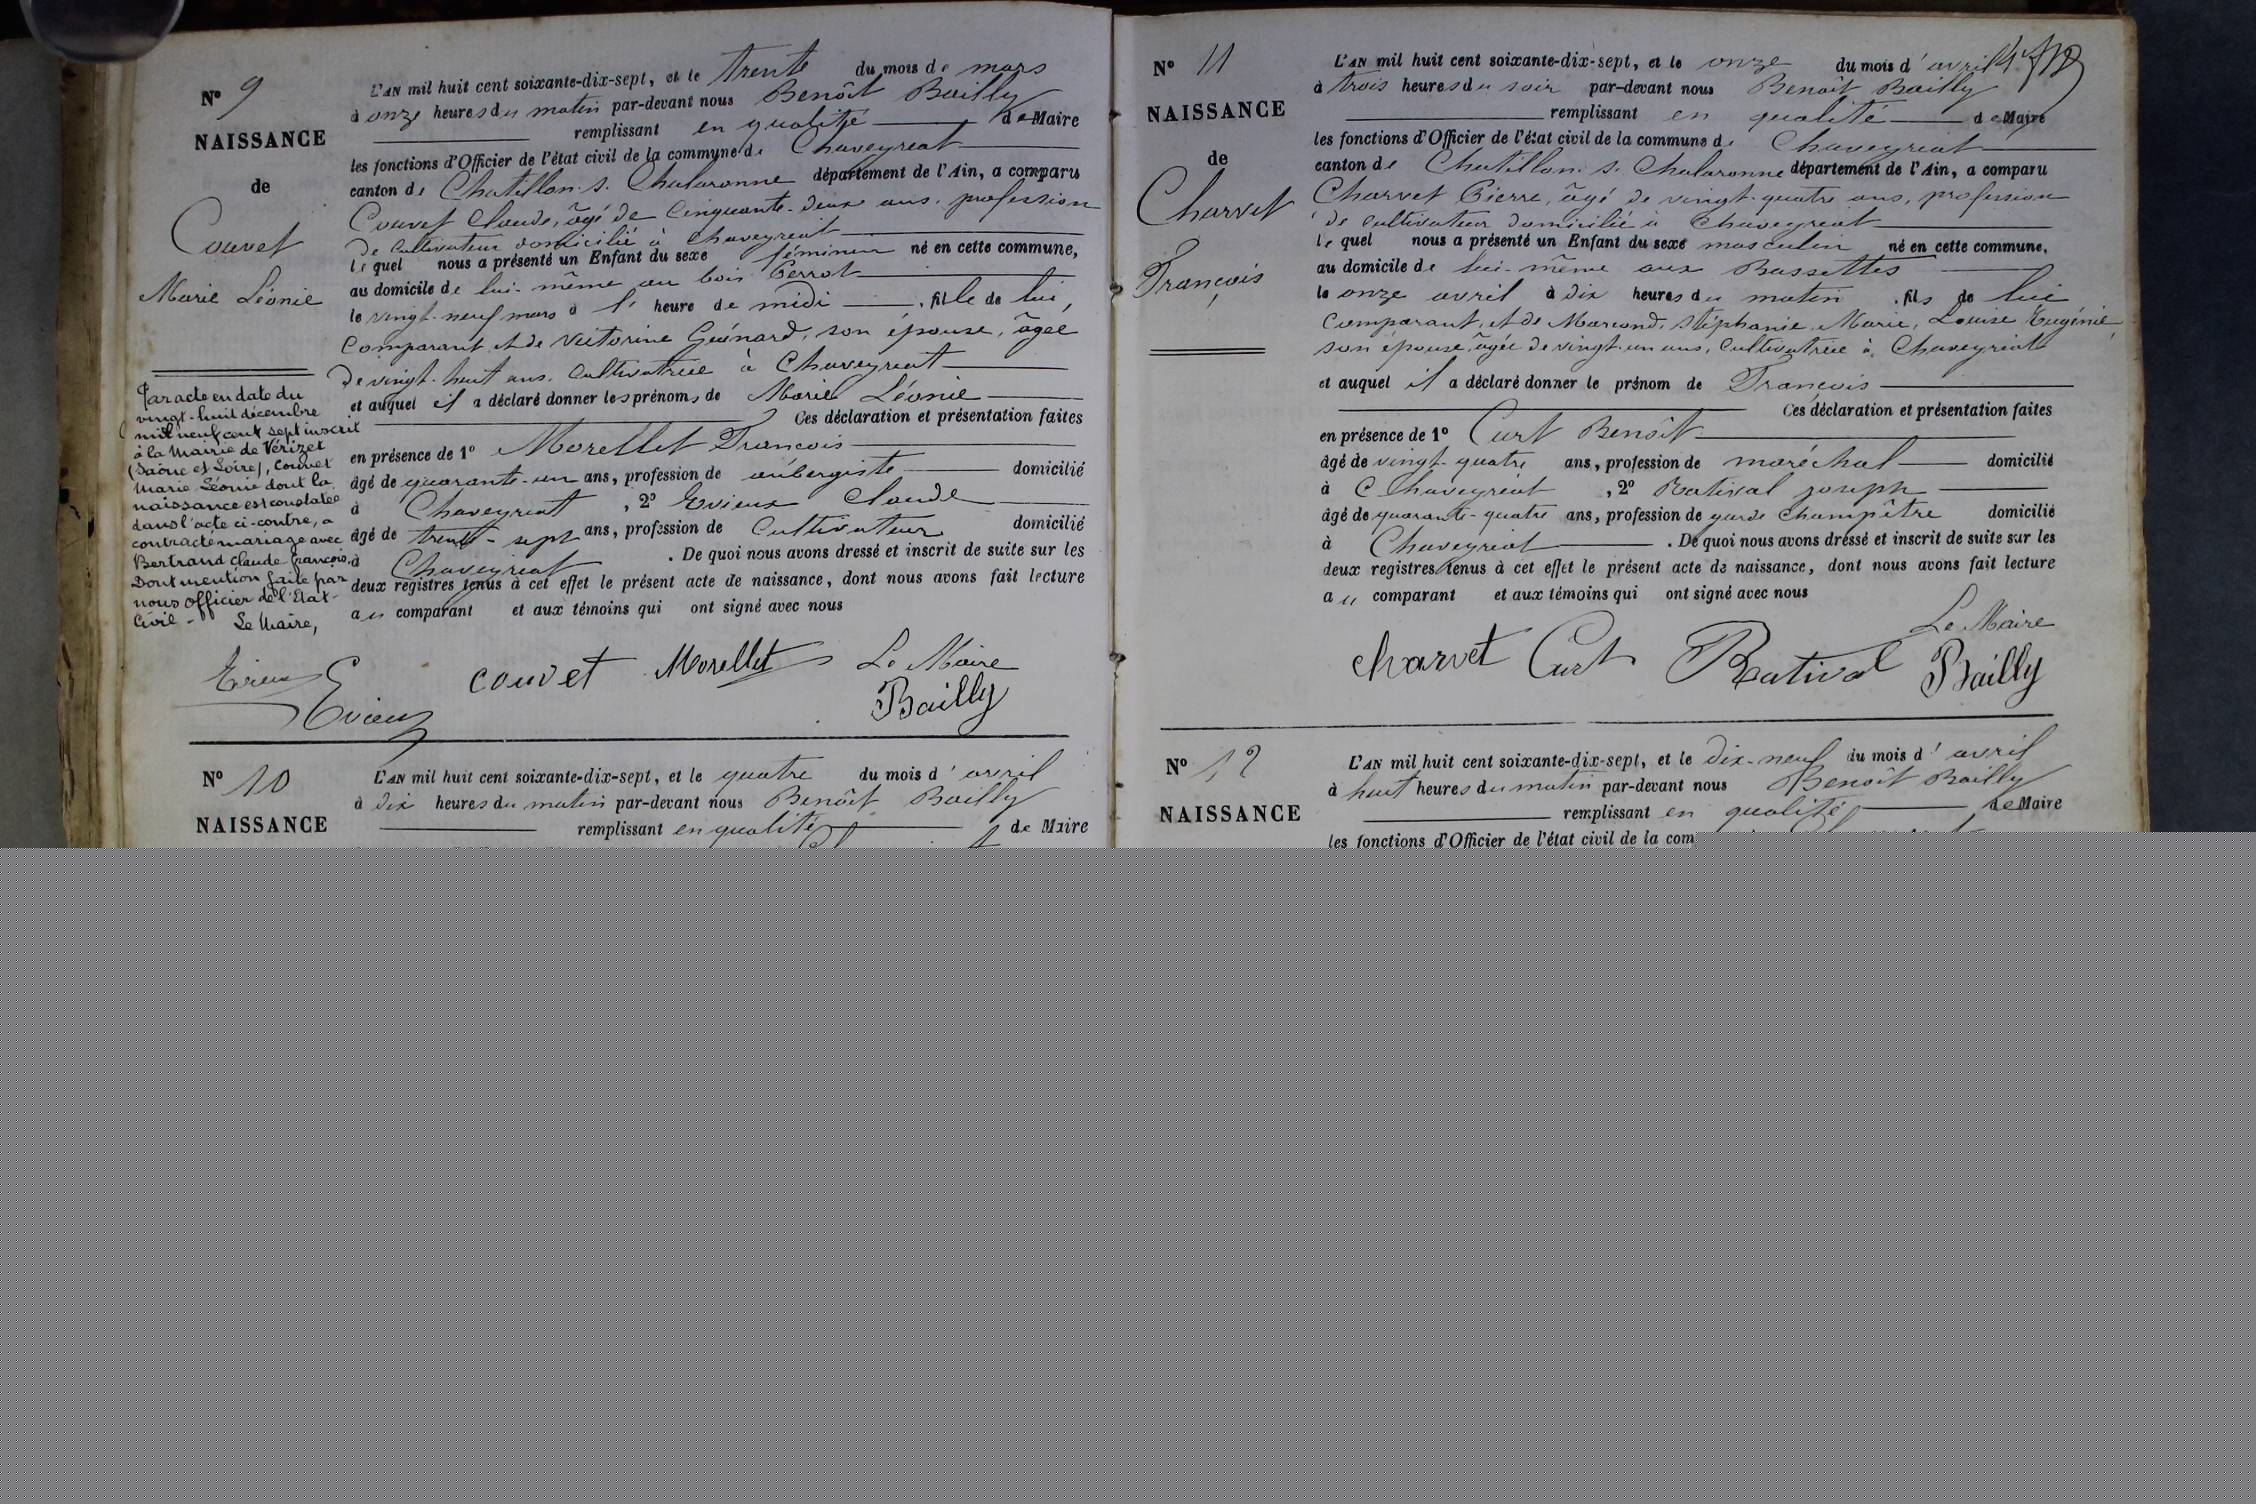 N° 9
NAISSANCE
de
Couvet
Marie Léonie
L'AN mil huit cent soixante-dix-sept, et le trente du mois de mars
à onze heures du matin par-devant nous Benôit Bailly
remplissant en qualité de Maire
les fonctions d'Officier de l'état civil de la commune de Chaveyriat
canton de Chatillon s. Chalaronne département de l'Ain, a comparu
Couvet Claude, âgé de Cinquante-deux ans, profession
de Cultivateur domicilié à Chaveyriat
lequel nous a présenté un Enfant du sexe féminin né en cette commune,
au domicile de lui-même au bois Perrot
le vingt-neuf mars à l' heure de midi, fille de lui,
Comparant et de Victorine Guénard, son épouse, âgée
de vingt-huit ans, Cultivatrice à Chaveyriat
et auquel il a déclaré donner les prénoms de Marie Léonie
Ces déclaration et présentation faites
en présence de 1° Morellet François
âgé de quarante-un ans, profession de aubergiste domicilié
à Chaveyriat, 2° Evieux Claude
âgé de trente-sept ans, profession de Cultivateur domicilié
à Chaveyriat. De quoi nous avons dressé et inscrit de suite sur les
deux registres tenus à cet effet le présent acte de naissance, dont nous avons fait lecture
au comparant et aux témoins qui ont signé avec nous
Par acte en date du
vingt-huit décembre
mil neuf cent sept inscrit
à la Mairie de Vérizet
(Saône et Loire), Couvet
Marie Léonie dont la
naissance est constatée
dans l'acte ci-contre, a
contracté mariage avec
Bertrand Claude François.
Dont mention faite par
nous Officier de l'Etat-
Civil - Le Maire,
Evieux couvet Morellet Le Maire
Evieux Bailly
N° 10
NAISSANCE
L'AN mil huit cent soixante-dix-sept, et le quatre du mois d'avril
à dix heures du matin par-devant nous Benôit Bailly
remplissant en qualité de Maire
N° 11
NAISSANCE
de
Charvet
François
L'AN mil huit cent soixante-dix-sept, et le onze du mois d'avril
à trois heures du soir par-devant nous Benoît Bailly
remplissant en qualité de Maire
les fonctions d'Officier de l'état civil de la commune de Chaveyriat
canton de Chatillon s. Chalaronne département de l'Ain, a comparu
Charvet Pierre, âgé de vingt-quatre ans, profession
de cultivateur domicilié à Chaveyriat
lequel nous a présenté un Enfant du sexe masculin né en cette commune,
au domicile de lui-même aux Bassettes
le onze avril à dix heures du matin, fils de lui
Comparant, et de Marcond, Stéphanie, Marie, Louise Eugénie,
son épouse, âgée de vingt-un ans, Cultivatrice à Chaveyriat
et auquel il a déclaré donner le prénom de François
Ces déclaration et présentation faites
en présence de 1° Curt Benôit
âgé de vingt-quatre ans, profession de maréchal domicilié
à Chaveyriat, 2° Ratival Joseph
âgé de quarante-quatre ans, profession de garde Champêtre domicilié
à Chaveyriat. De quoi nous avons dressé et inscrit de suite sur les
deux registres tenus à cet effet le présent acte de naissance, dont nous avons fait lecture
au comparant et aux témoins qui ont signé avec nous
Le Maire
charvet Curt Ratival Bailly
N° 12
NAISSANCE
L'AN mil huit cent soixante-dix-sept, et le dix-neuf du mois d'avril
à huit heures du matin par-devant nous Benoît Bailly
remplissant en qualité de Maire
les fonctions d'Officier de l'état civil de la com